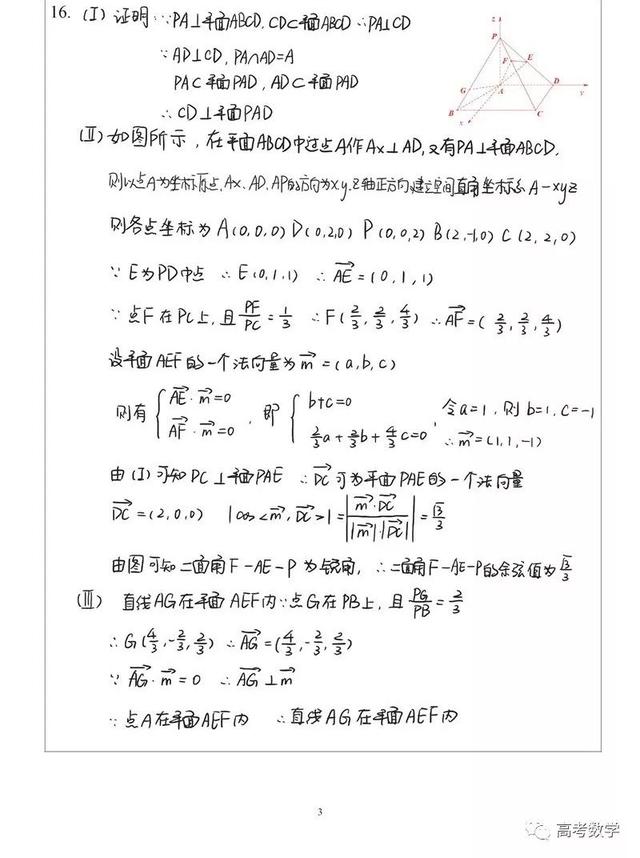 16. (Ⅰ) 证明: ∵PA⊥平面ABCD, CD⊂平面ABCD ∴PA⊥CD
∵AD⊥CD, PA∩AD=A
PA⊂平面PAD, AD⊂平面PAD
∴CD⊥平面PAD
z
P
F E
G A D y
B C
x
(Ⅱ) 如图所示, 在平面ABCD中过点A作Ax⊥AD, 又有PA⊥平面ABCD,
则以点A为坐标原点, Ax、AD、AP的方向为x、y、z轴正方向建立空间直角坐标系A-xyz
则各点坐标为 A(0,0,0) D(0,2,0) P(0,0,2) B(2,-1,0) C(2,2,0)
∵E为PD中点 ∴E(0,1,1) ∴AE→=(0,1,1)
∵点F在PC上, 且PF/PC=1/3 ∴F(2/3,2/3,4/3) ∴AF→=(2/3,2/3,4/3)
设平面AEF的一个法向量为m→=(a,b,c)
则有 { AE→·m→=0 AF→·m→=0 , 即 { b+c=0 2/3a+2/3b+4/3c=0 , 令a=1, 则b=1, c=-1 ∴m→=(1,1,-1)
由(Ⅰ)可知DC⊥平面PAE ∴DC→可为平面PAE的一个法向量
DC→=(2,0,0) |cos<m→,DC→>|=|m→·DC→/|m→|·|DC→||=√3/3
由图可知二面角F-AE-P为锐角, ∴二面角F-AE-P的余弦值为√3/3
(Ⅲ) 直线AG在平面AEF内 ∵点G在PB上, 且PG/PB=2/3
∴G(4/3,-2/3,2/3) ∴AG→=(4/3,-2/3,2/3)
∵AG→·m→=0 ∴AG→⊥m→
∵点A在平面AEF内 ∴直线AG在平面AEF内
3
高考数学